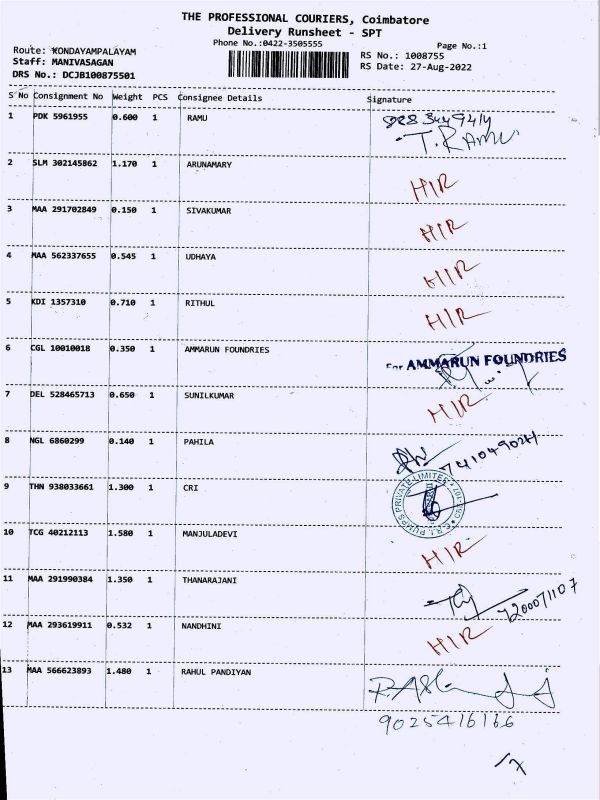 THE PROFESSIONAL COURIERS, Coimbatore
Delivery Runsheet - SPT
Phone No.:0422-3505555
Page No.:1
Route: KONDAYAMPALAYAM
RS No.: 1008755
Staff: MANIVASAGAN
RS Date: 27-Aug-2022
DRS No.: DCJB100875501
S No Consignment No Weight PCS Consignee Details Signature
1 PDK 5961955 0.600 1 RAMU
T. RAMU
2 SLM 302145862 1.170 1 ARUNAMARY HIR
3 MAA 291702849 0.150 1 SIVAKUMAR HIR
4 MAA 562337655 0.545 1 UDHAYA HIR
5 KDI 1357310 0.710 1 RITHUL HIR
6 CGL 10010018 0.350 1 AMMARUN FOUNDRIES For AMMARUN FOUNDRIES
7 DEL 528465713 0.650 1 SUNILKUMAR HIR
8 NGL 6860299 0.140 1 PAHILA
9 THN 938033661 1.300 1 CRI PUMPS PRIVATE LIMITED
10 TCG 40212113 1.580 1 MANJULADEVI HIR
11 MAA 291990384 1.350 1 THANARAJANI
12 MAA 293619911 0.532 1 NANDHINI HIR
13 MAA 566623893 1.480 1 RAHUL PANDIYAN
9025416166